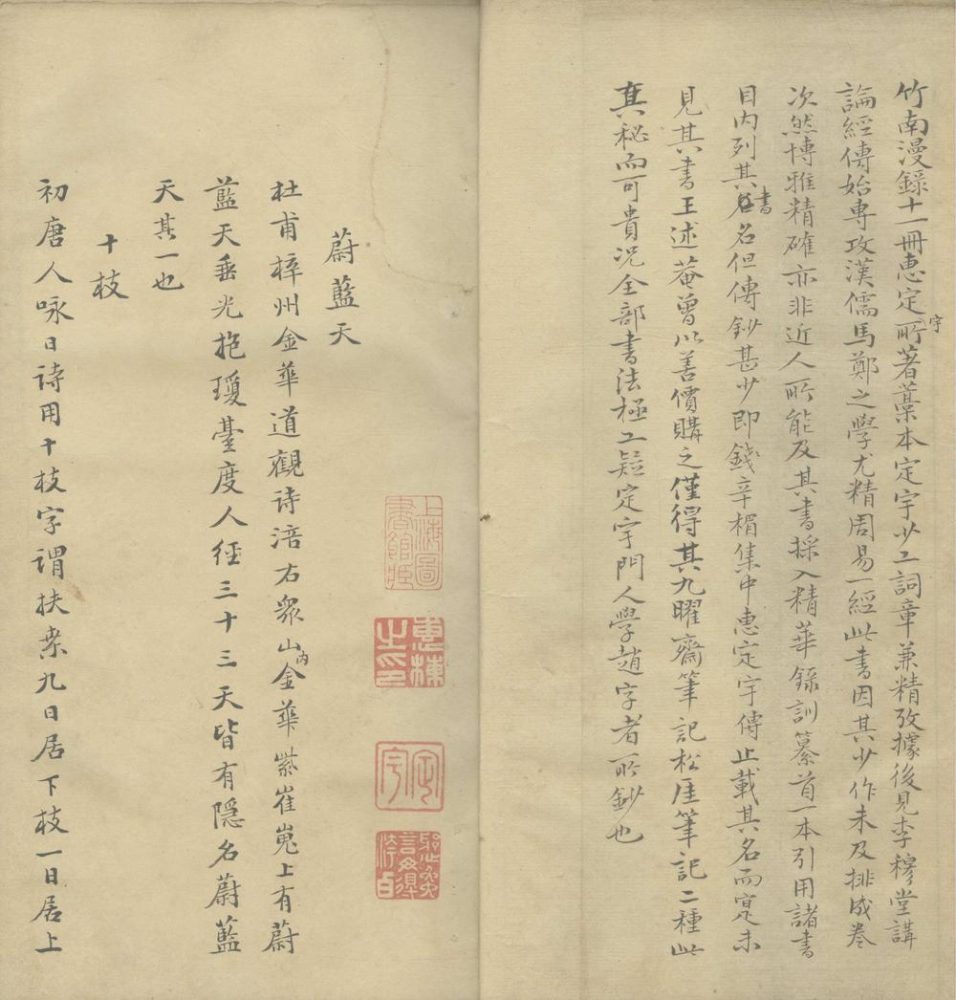 竹南漫錄十一冊惠定宇所著藁本定宇少工詞章兼精攷據後見李穆堂講
論經傳始專攻漢儒馬鄭之學尤精周易一經此書因其少作未及排成卷
次然博雅精確亦非近人所能及其書採入精華錄訓纂首一本引用諸書
目內列其書名但傳鈔甚少即錢辛楣集中惠定宇傳止載其名而寔未
見其書王述菴曾以善價購之僅得其九曜齋筆記松厓筆記二種此
真秘而可貴況全部書法極工疑定宇門人學趙字者所鈔也
蔚藍天
杜甫梓州金華道觀诗涪右眾山內金華紫崔嵬上有蔚
藍天垂光抱瓊臺度人徑三十三天皆有隱名蔚藍
天其一也
十枝
初唐人咏日诗用十枝字謂扶桒九日居下枝一日居上
上海圖書館藏
惠棟之印
定宇